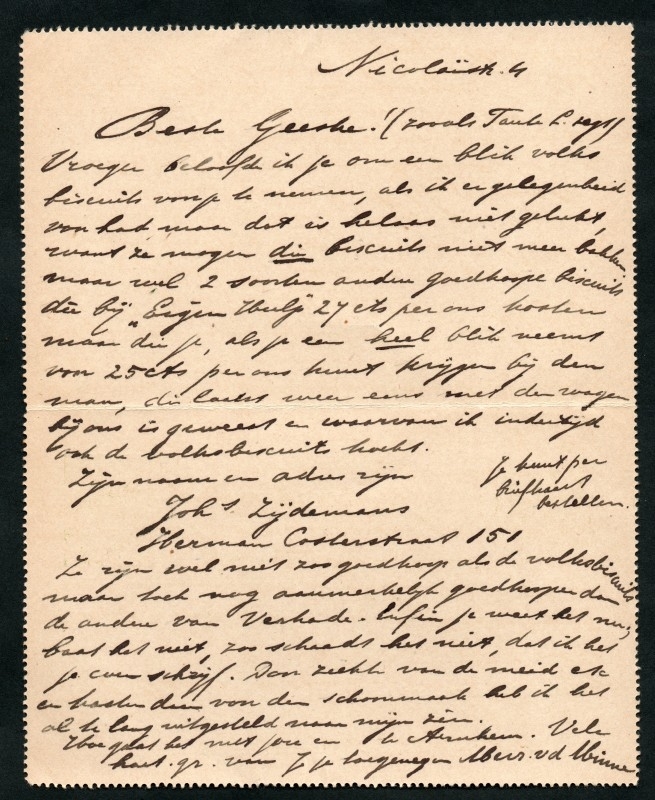 Nicolaïstr. 4
Beste Geeske! (zooals Tante L. zegt)
Vroeger beloofde ik je om een blik volks
biscuits voor je te nemen, als ik er gelegenheid
voor had maar dat is helaas niet gelukt,
want ze mogen die biscuits niet meer bakken,
maar wel 2 soorten andere goedkoope biscuits
die bij "Eigen Hulp" 27 cts per ons kosten
maar die je, als je een heel blik neemt
voor 25 cts per ons kunt krijgen bij den
man, die laatst weer eens met den wagen
bij ons is geweest en waarvan ik indertijd
ook de volksbiscuits kocht.
Zijn naam en adres zijn
Je kunt per
briefkaart
bestellen.
Joh.s Zijdemans
Herman Costerstraat 151
Ze zijn wel niet zoo goedkoop als de volksbiscuits
maar toch nog aanmerkelijk goedkooper dan
de andere van Verkade. Enfin je weet het nu;
baat het niet, zoo schaadt het niet, dat ik het
je even schrijf. Door ziekte van de meid etc
en kasten doen van den schoonmaak heb ik het
al te lang uitgesteld naar mijn zin.
Hoe gaat het met jou en te Arnhem. Vele
hart. gr. van je toegenegen v.d. Minne